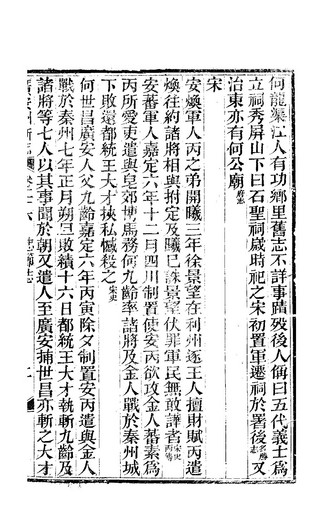 何龍渠江人有功鄉里舊志不詳事蹟歿後人稱曰五代義士爲
立祠秀屏山下曰石聖祠歲時祀之宋初置軍遷祠於署後名勝志又
治東亦有何公廟府志
宋
安煥軍人丙之弟開曦三年徐景望在利州逐王人擅財賦丙遣
煥往約諸將相與拊定及曦已誅景望伏罪軍民無敢譁者宋史丙傳
安蕃軍人嘉定六年十二月四川制置使安丙欲攻金人蕃素爲
丙所愛更遣與皂郊博馬務何九齡率諸將及金人戰於秦州城
下敗還都統王大才挾私憾殺之宋史
何世昌廣安人父九齡嘉定六年丙寅除夕制置安丙遣與金人
戰於秦州七年正月朔旦敗績十六日都統王大才執斬九齡及
諸將等七人以其事聞於朝又遣人至廣安捕世昌亦斬之大才